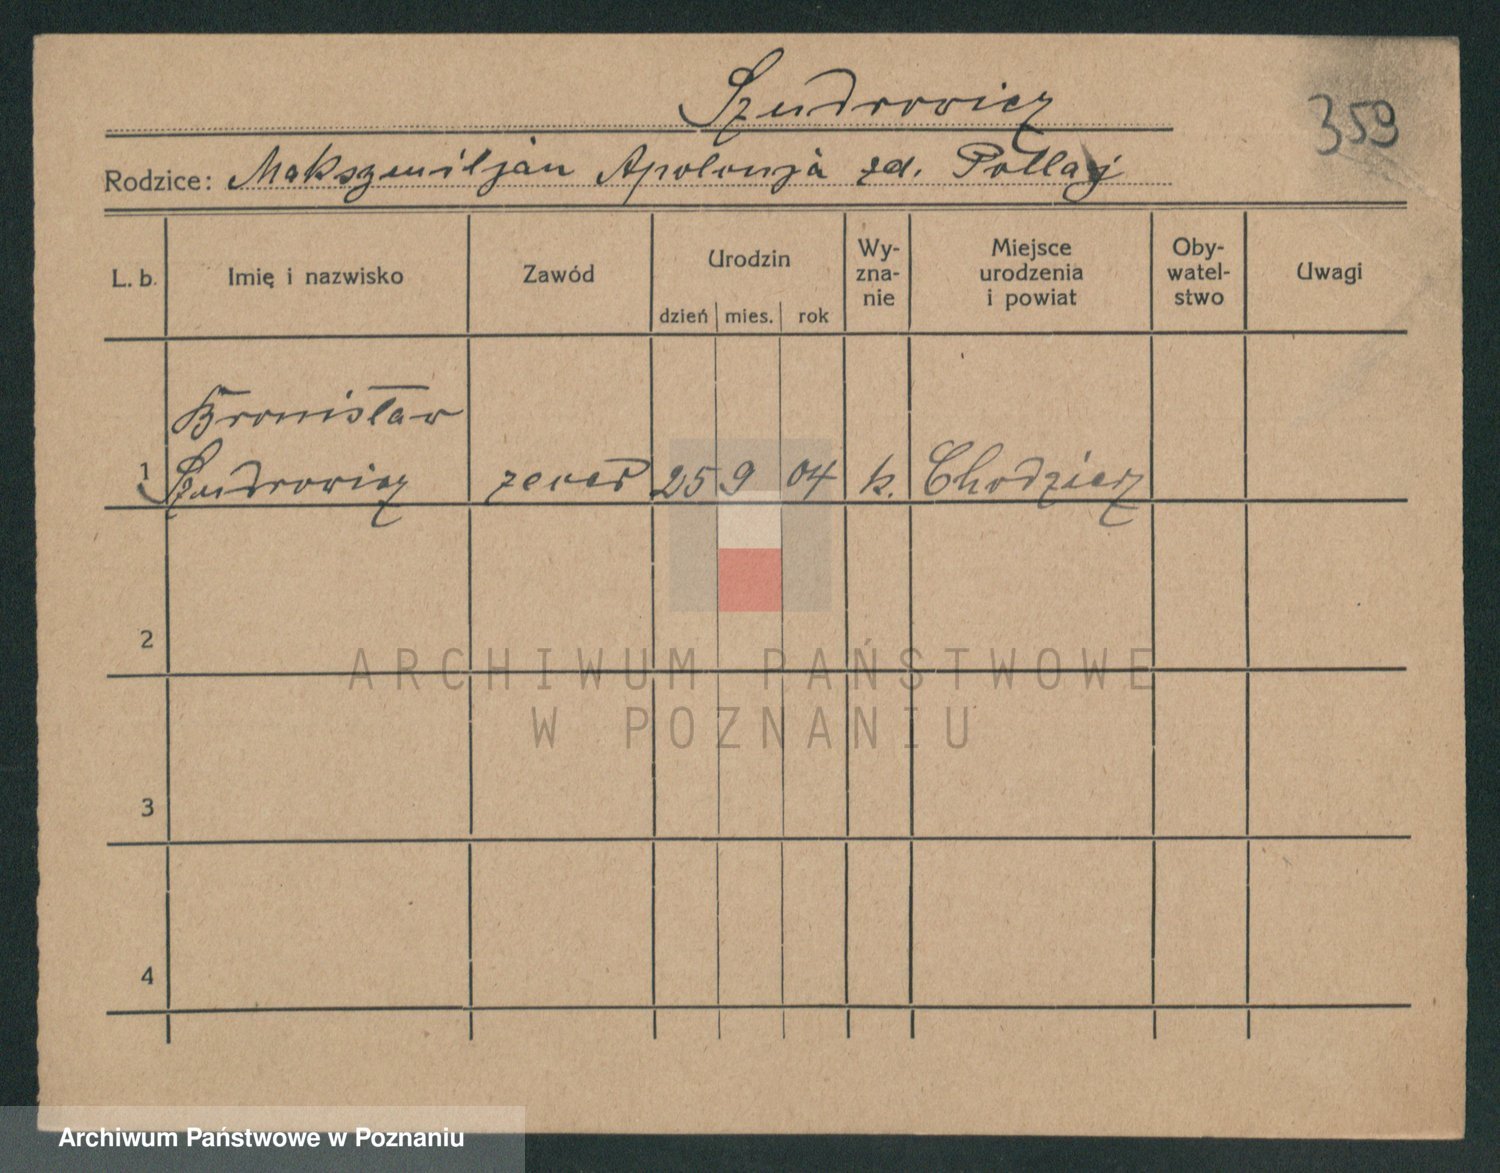 Szudrowicz
359
Rodzice: Makszymiljan Apolonja zd. Pollaj
L. b.
Imię i nazwisko
Zawód
Urodzin
dzień mies. rok
Wy-
zna-
nie
Miejsce
urodzenia
i powiat
Oby-
watel-
stwo
Uwagi
Bronisław
1 Szudrowicz zecer 25 9 04 k. Chodzież
2
3
4
ARCHIWUM PAŃSTWOWE
W POZNANIU
Archiwum Państwowe w Poznaniu